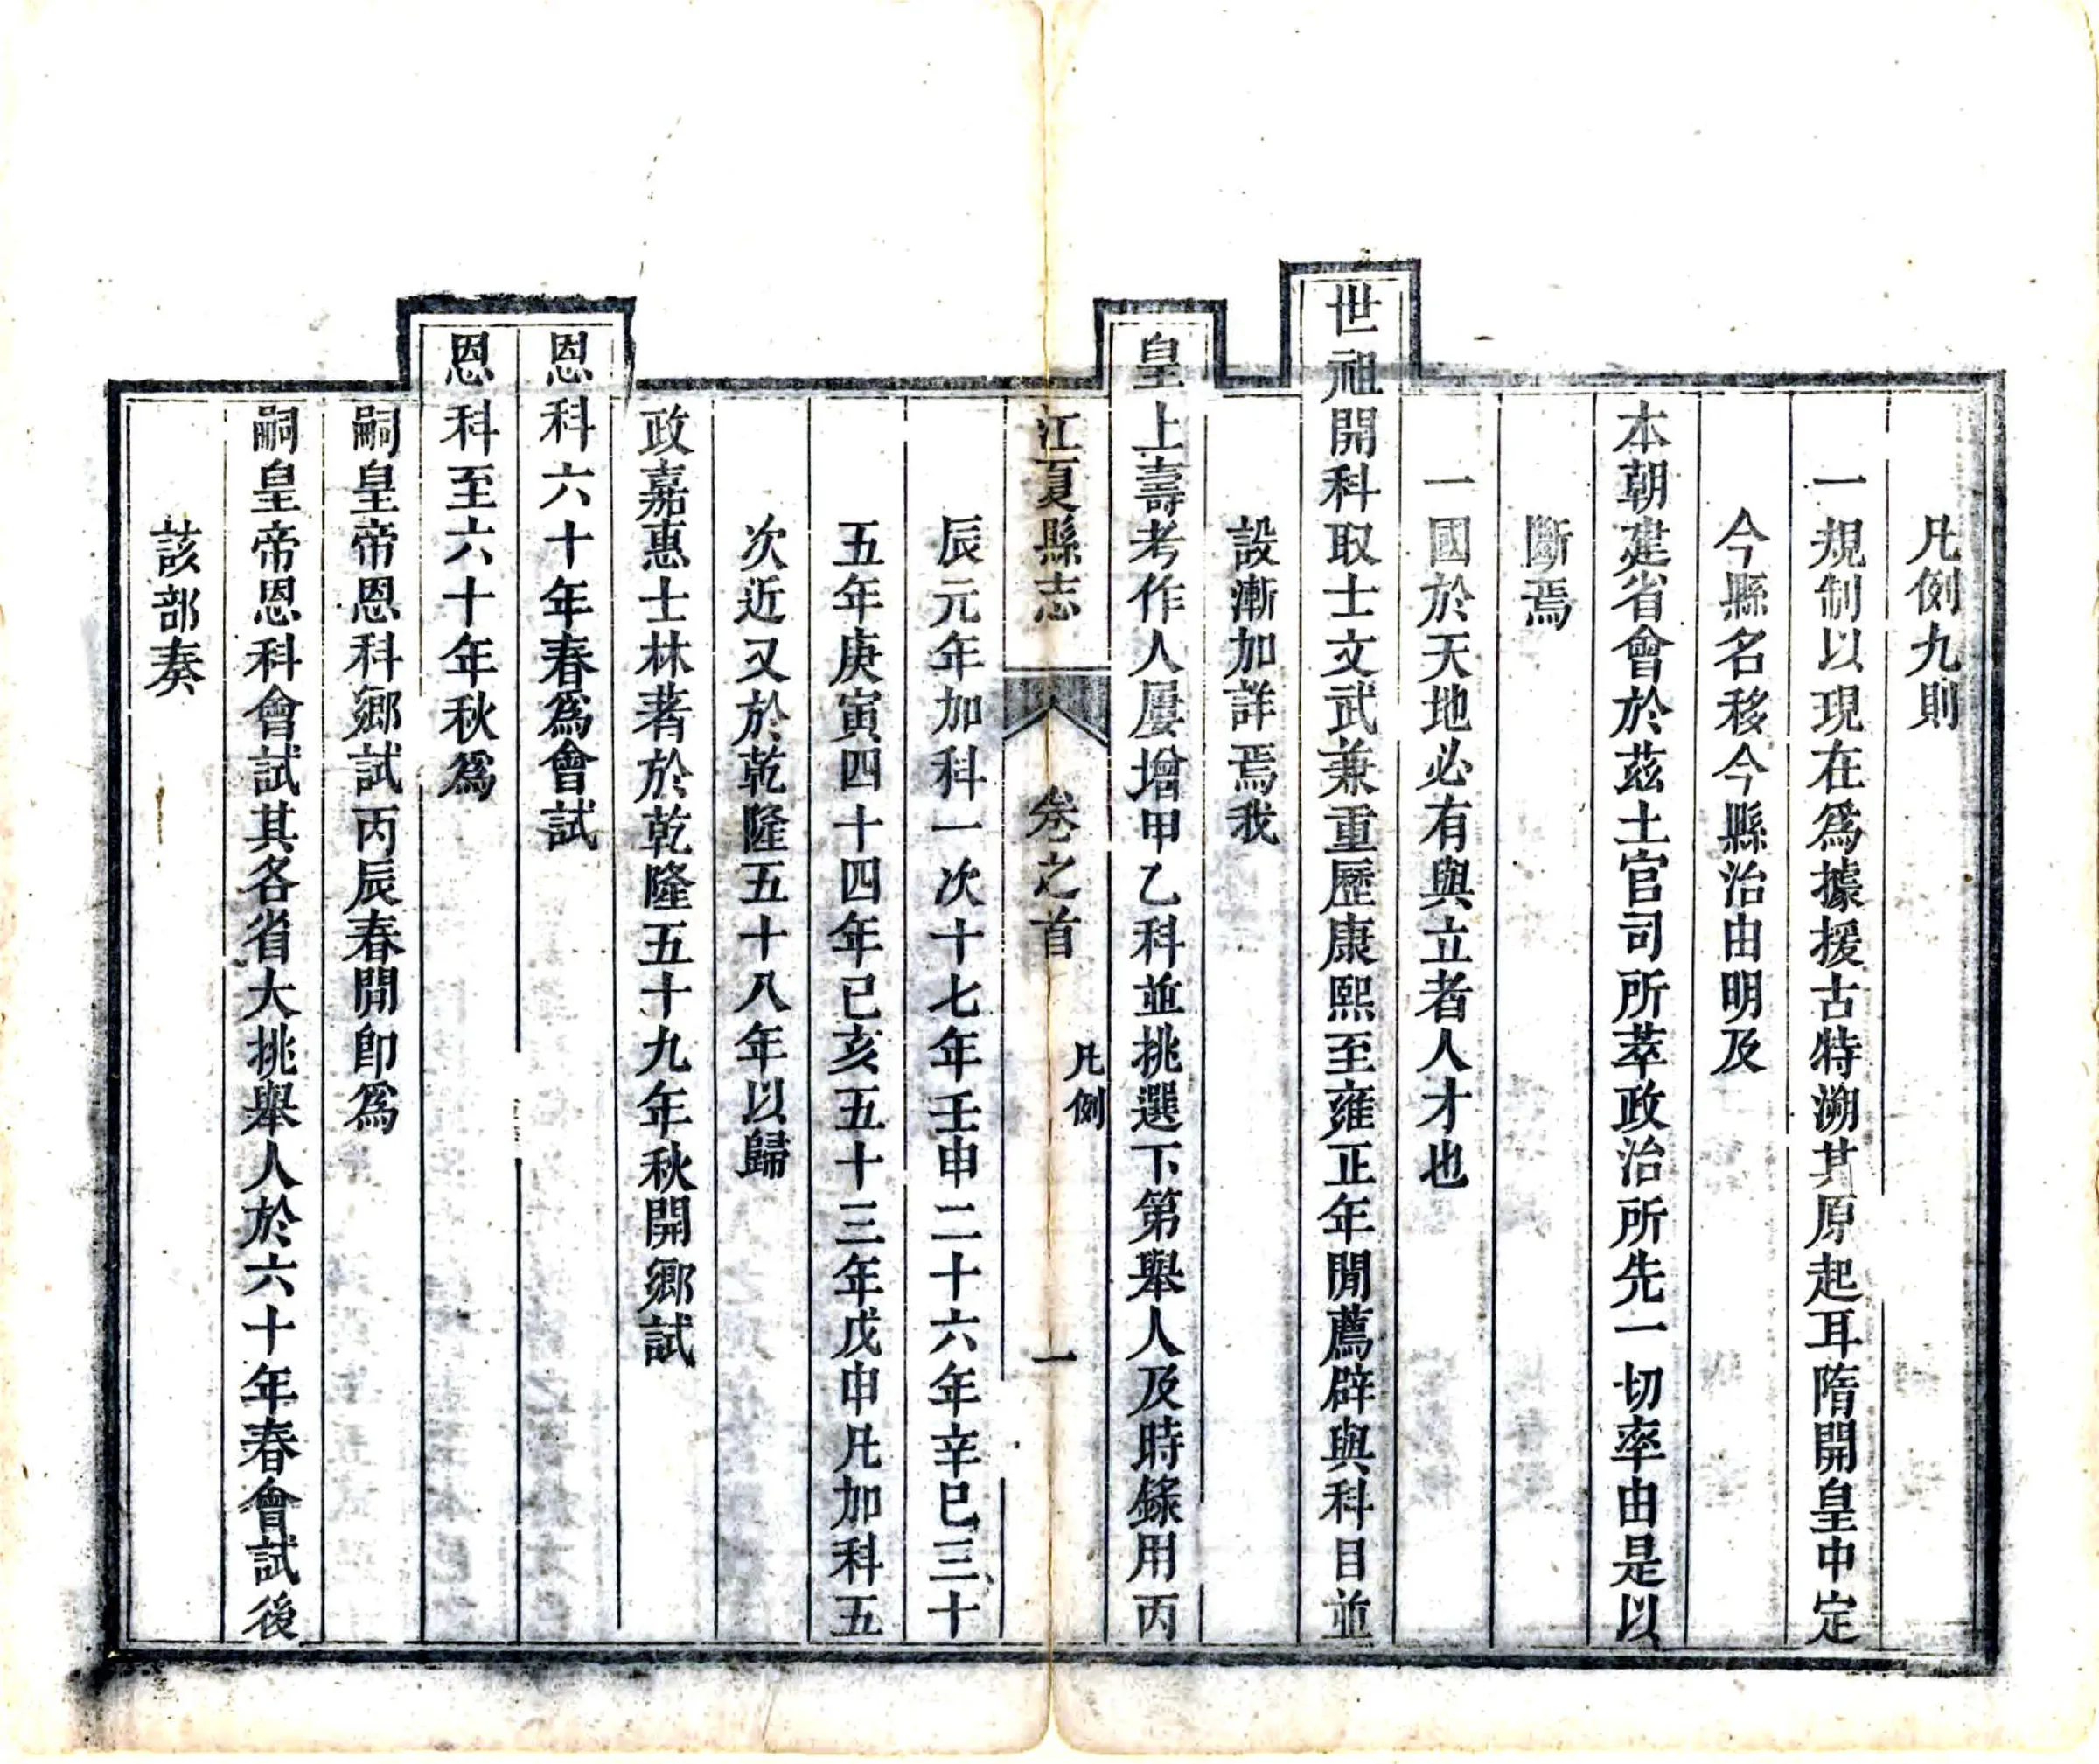 凡例九則
一規制以現在爲據援古特溯其原起耳隋開皇中定
今縣名移今縣治由明及
本朝建省會於茲土官司所萃政治所先一切率由是以
斷焉
一國於天地必有與立者人才也
世祖開科取士文武兼重歷康熙至雍正年間薦辟與科目並
設漸加詳焉我
皇上壽考作人屢增甲乙科並挑選下第舉人及時錄用丙
江夏縣志 卷之首 凡例 一
辰元年加科一次十七年壬申二十六年辛巳三十
五年庚寅四十四年己亥五十三年戊申凡加科五
次近又於乾隆五十八年以歸
政嘉惠士林著於乾隆五十九年秋開鄉試
恩科六十年春爲會試
恩科至六十年秋爲
嗣皇帝恩科鄉試丙辰春閒卽爲
嗣皇帝恩科會試其各省大挑舉人於六十年春會試後
該部奏